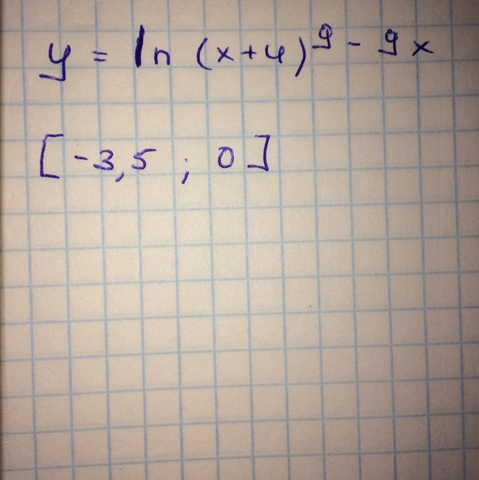 y = ln (x+4)⁹ - 9x
[-3,5 ; 0]